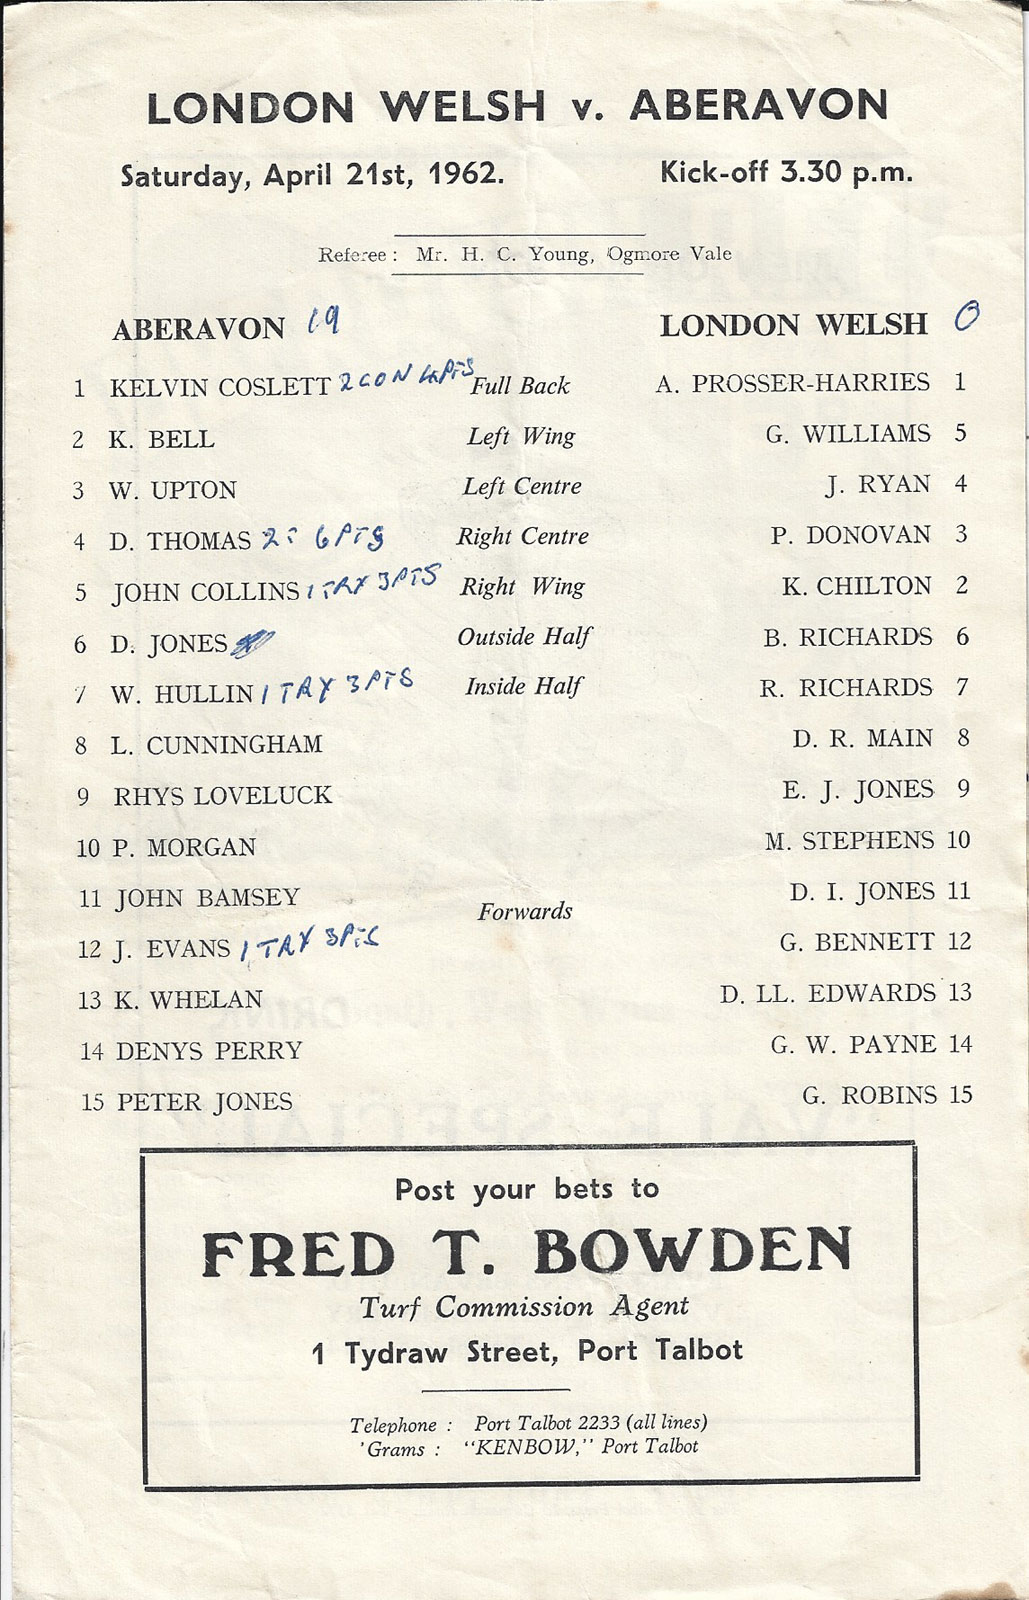 LONDON WELSH v. ABERAVON
Saturday, April 21st, 1962. Kick-off 3.30 p.m.
Referee : Mr. H. C. Young, Ogmore Vale
ABERAVON 19 LONDON WELSH 0
1 KELVIN COSLETT 2 CON 4 PTS Full Back A. PROSSER-HARRIES 1
2 K. BELL Left Wing G. WILLIAMS 5
3 W. UPTON Left Centre J. RYAN 4
4 D. THOMAS 2 6 PTS Right Centre P. DONOVAN 3
5 JOHN COLLINS 1 TRY 3 PTS Right Wing K. CHILTON 2
6 D. JONES Outside Half B. RICHARDS 6
7 W. HULLIN 1 TRY 3 PTS Inside Half R. RICHARDS 7
8 L. CUNNINGHAM D. R. MAIN 8
9 RHYS LOVELUCK E. J. JONES 9
10 P. MORGAN M. STEPHENS 10
11 JOHN BAMSEY D. I. JONES 11
Forwards
12 J. EVANS 1 TRY 3 PTS G. BENNETT 12
13 K. WHELAN D. LL. EDWARDS 13
14 DENYS PERRY G. W. PAYNE 14
15 PETER JONES G. ROBINS 15
Post your bets to
FRED T. BOWDEN
Turf Commission Agent
1 Tydraw Street, Port Talbot
Telephone : Port Talbot 2233 (all lines)
'Grams : "KENBOW," Port Talbot